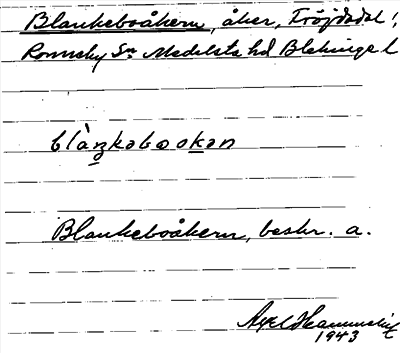 Blankeboåkern, åker, Fröjdadal,
Ronneby Sn Medelsta hd Blekinge l
blàŋkəbooкən
Blankeboåkern, beskr. a.
Axel
1943